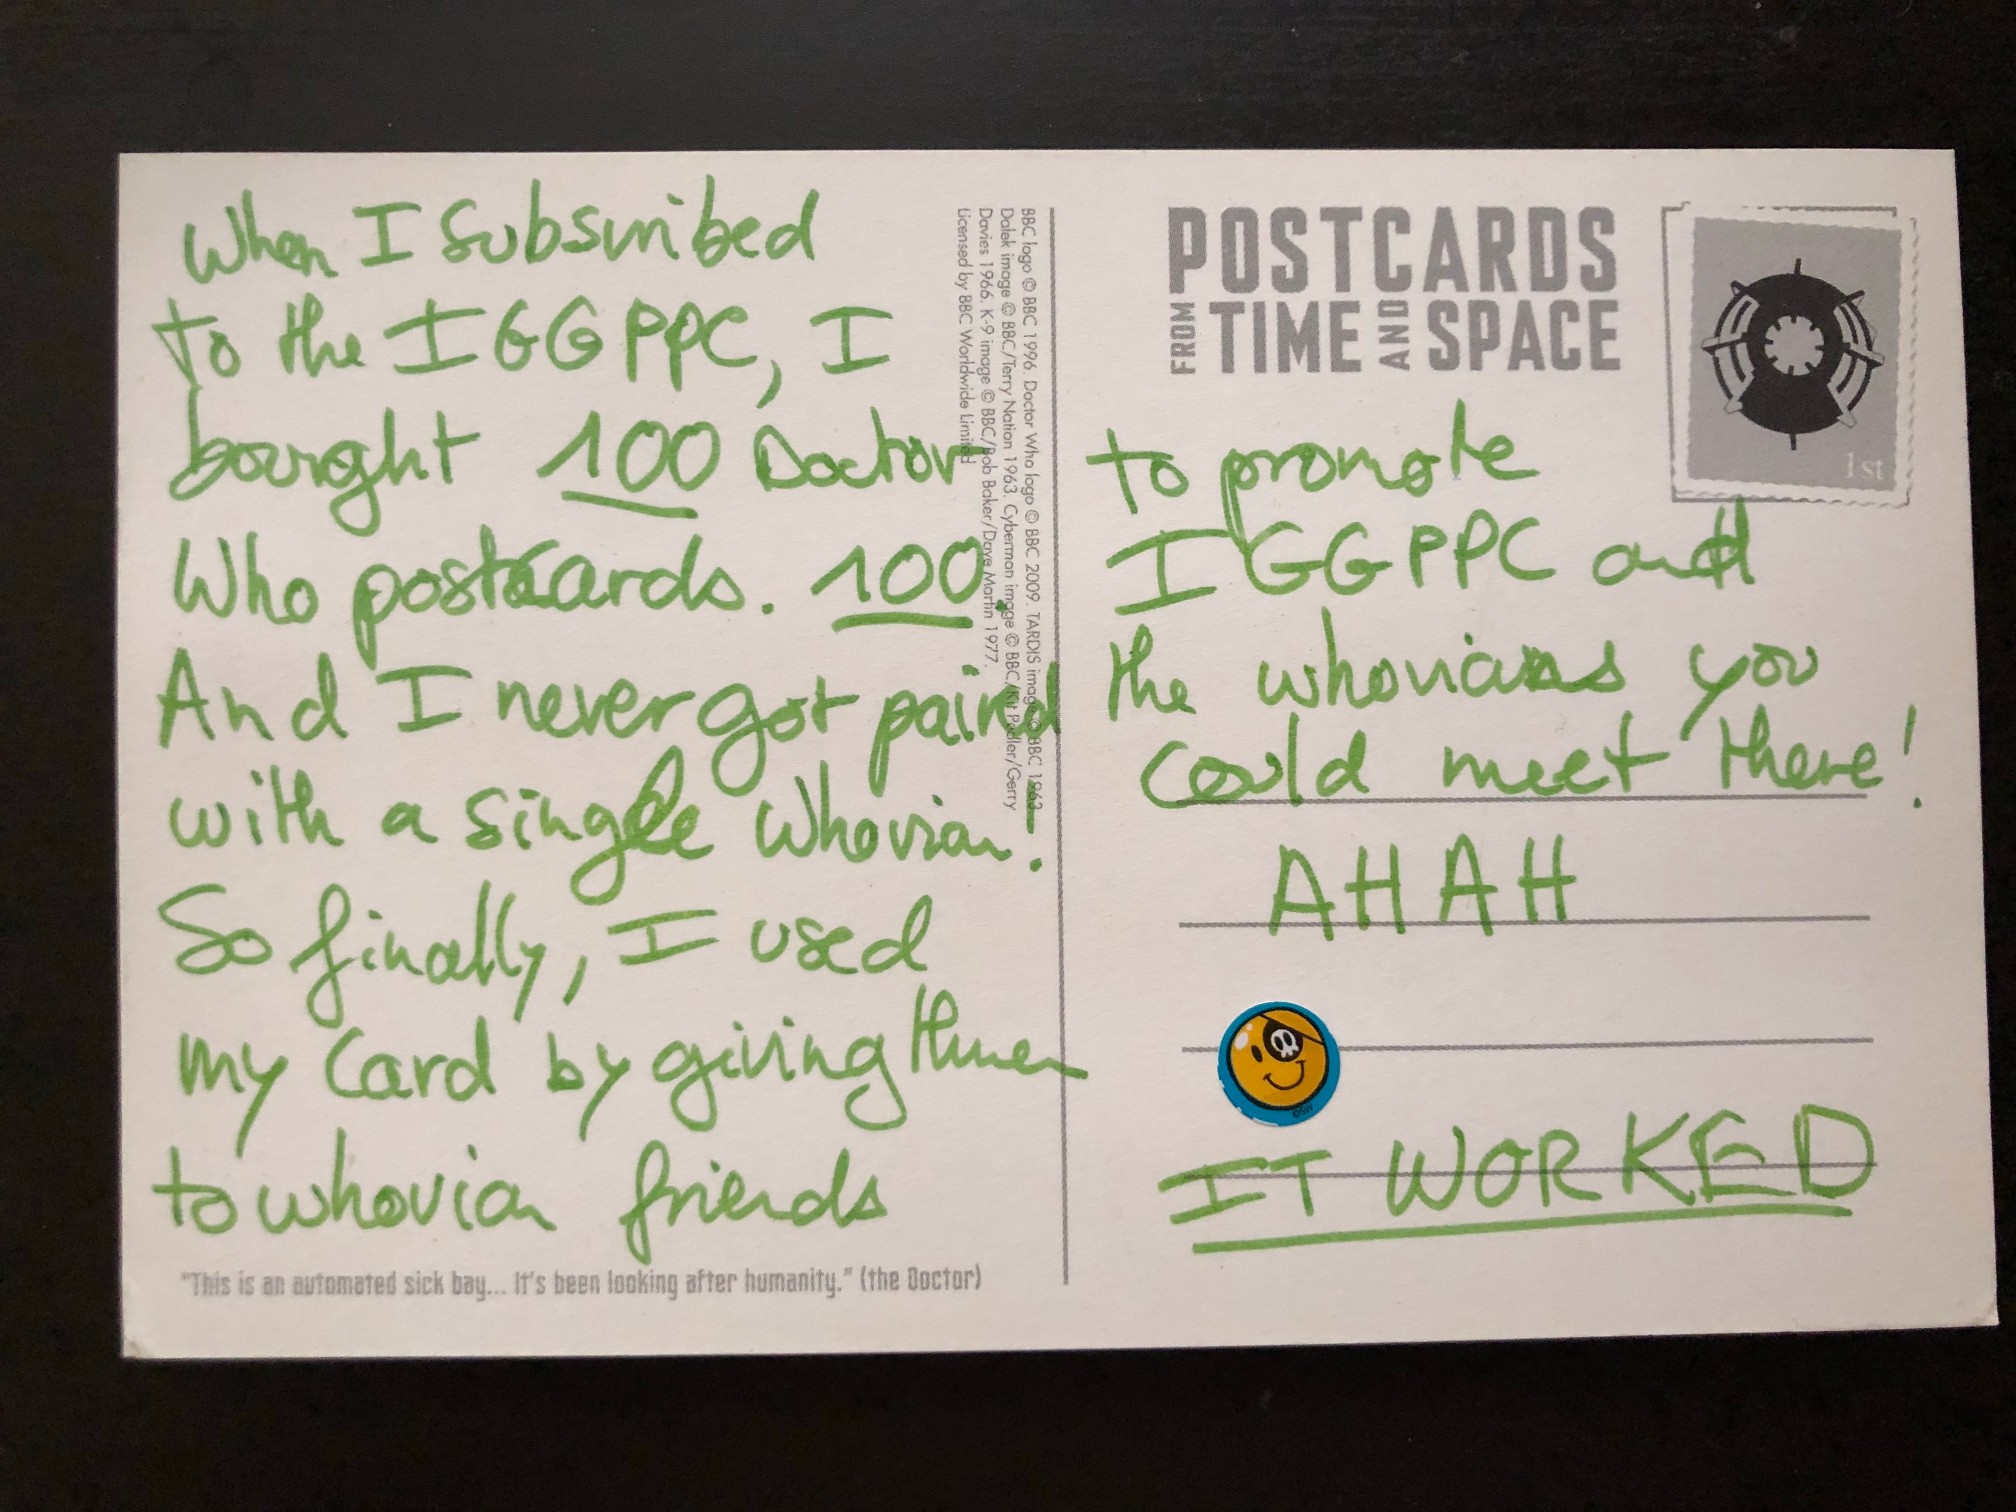 When I Subscribed
to the IGGPPC, I
bought 100 Doctor
Who postcards. 100.
And I never got paired
with a single Whovian.
So finally, I used
my card by giving
to whovian friends
"This is an automated sick bay... It's been looking after humanity." (the Doctor)
BBC logo © BBC 1996. Doctor Who logo © BBC 2009. TARDIS image © BBC 1963.
Dalek image © BBC/Terry Nation 1963. Cyberman image © BBC/Kit Pedler/Gerry
Davies 1966. K-9 image © BBC/Bob Baker/Dave Martin 1977.
Licensed by BBC Worldwide Limited
POSTCARDS
FROM TIME AND SPACE
1st
to promote
IGGPPC and
the whovians you
could meet there!
AHAH
©SW
IT WORKED